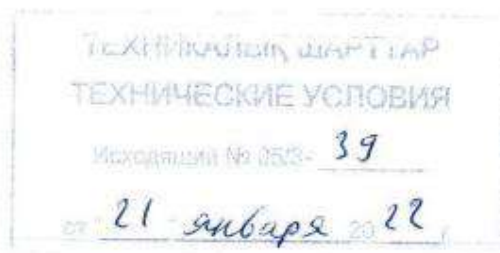 ТЕХНИКАЛЫҚ ШАРТТАР
ТЕХНИЧЕСКИЕ УСЛОВИЯ
Исходящий № 05/3- 39
от 21 января 20 22 г.